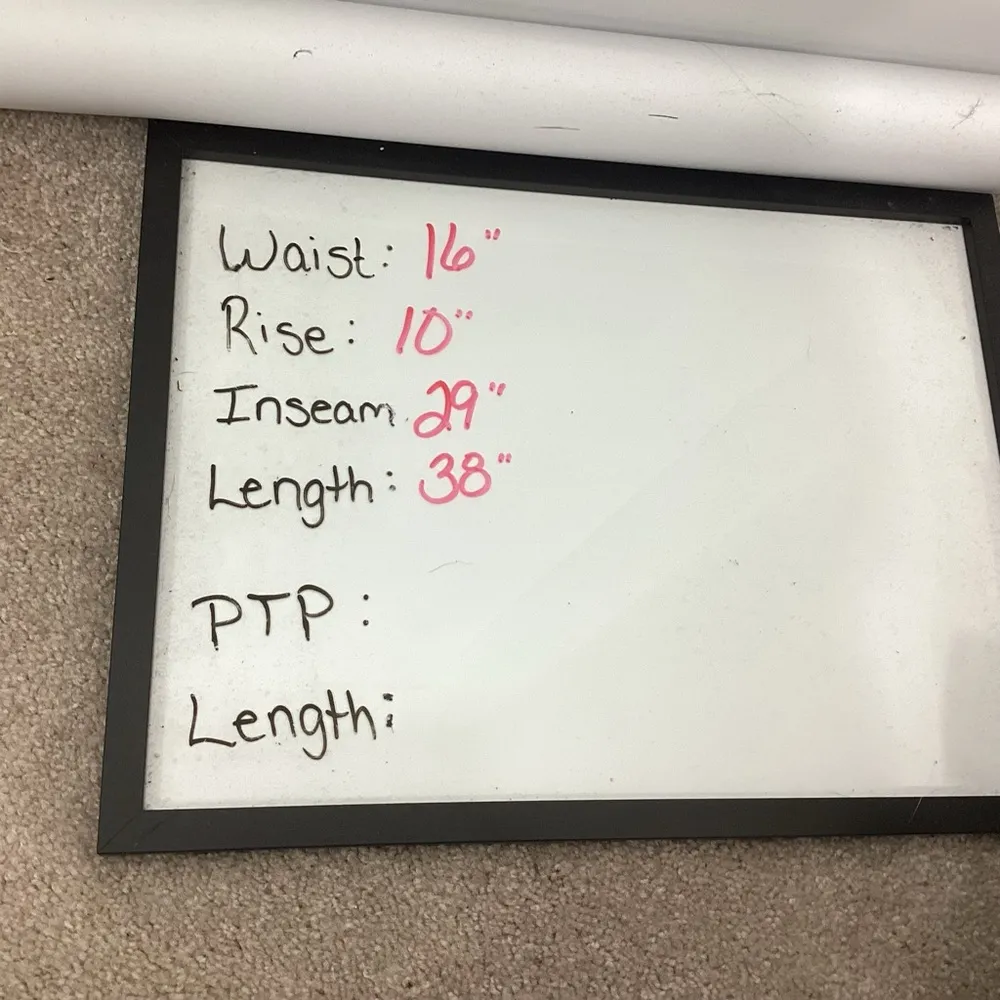 Waist: 16"
Rise: 10"
Inseam. 29"
Length: 38"
PTP:
Length: